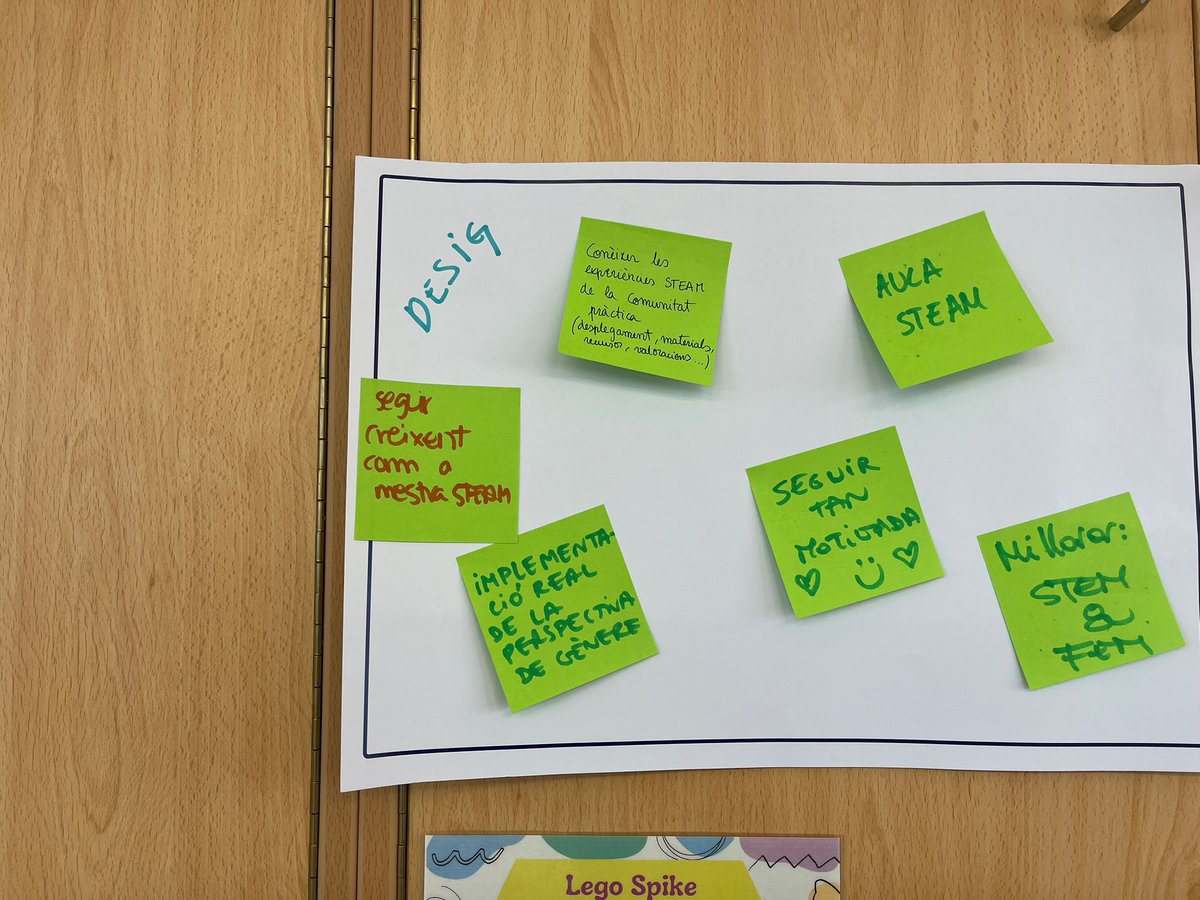 DESIG
Conèixer les
experiències STEAM
de la Comunitat
pràctica
(desplegament, materials,
recursos, valoracions...)
AULA
STEAM
seguir
creixent
com a
mestra STEAM
IMPLEMENTA-
CIÓ REAL
DE LA
PERSPECTIVA
DE GÈNERE
SEGUIR
TAN
MOTIVADA
Millorar:
STEM
&
FEM
Lego Spike